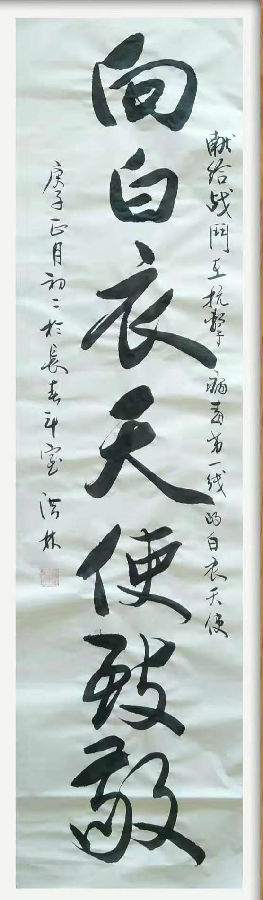 献给战鬥在抗击病毒第一线的白衣天使
向白衣天使致敬
庚子正月初二於長春斗室 洪林